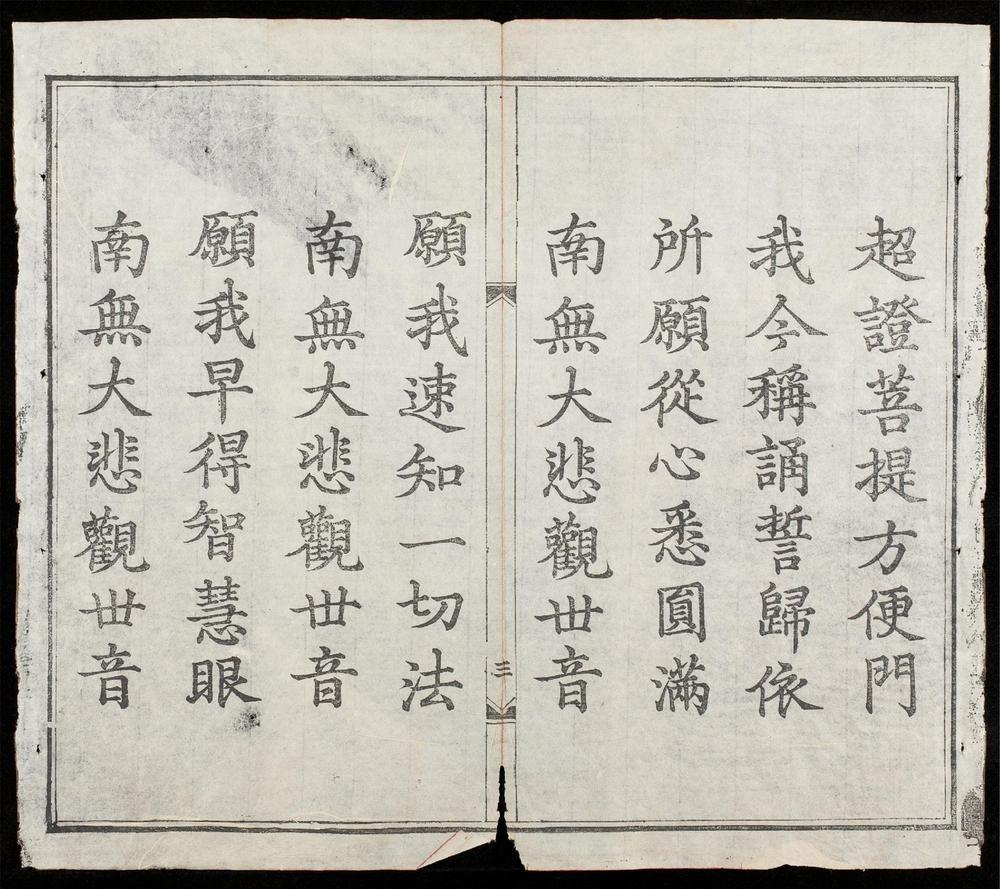 超證菩提方便門
我今稱誦誓歸依
所願從心悉圓滿
南無大悲觀世音
三
願我速知一切法
南無大悲觀世音
願我早得智慧眼
南無大悲觀世音